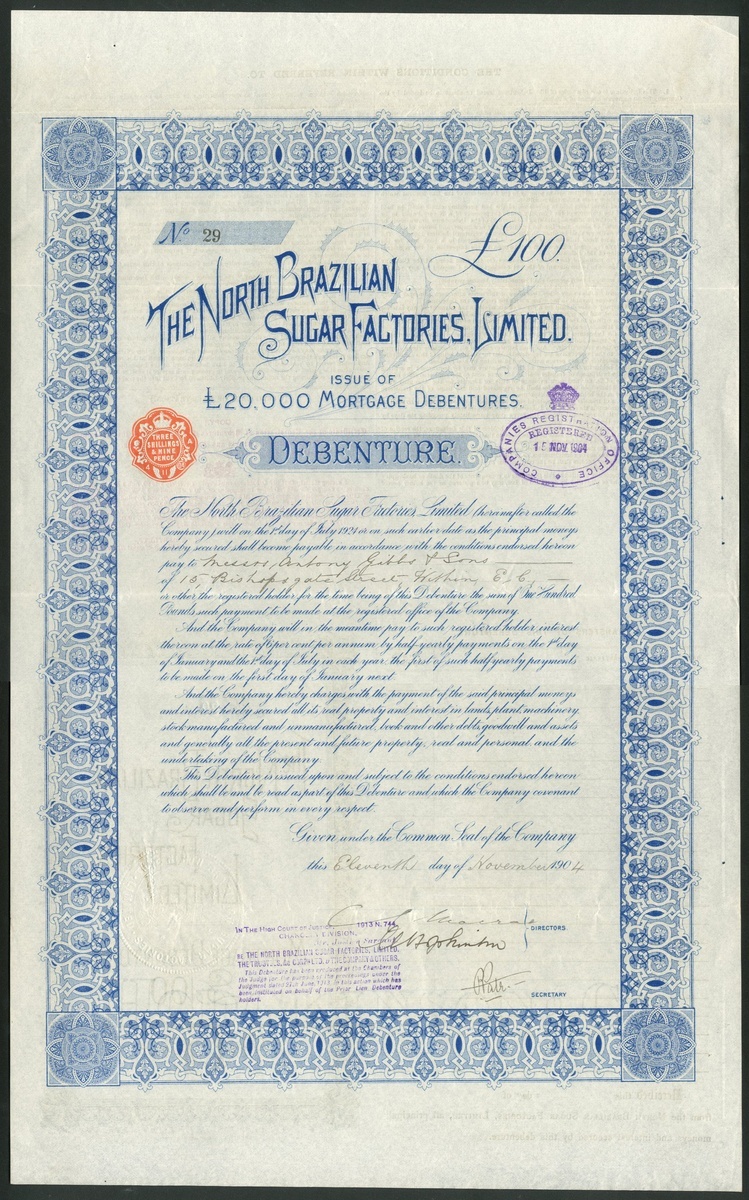 No 29
£100.
THE NORTH BRAZILIAN
SUGAR FACTORIES, LIMITED.
ISSUE OF
£20,000 MORTGAGE DEBENTURES.
THREE
SHILLINGS
& NINE
PENCE
DEBENTURE.
COMPANIES REGISTRATION OFFICE
REGISTERED
15 NOV. 1904
The North Brazilian Sugar Factories Limited (hereinafter called the
Company) will on the 1st day of July 1921 or on such earlier date as the principal moneys
hereby secured shall become payable in accordance with the conditions endorsed hereon
pay to Messrs. Antony Gibbs & Sons
of 15, Bishopsgate Street Within, E.C.
or other the registered holder for the time being of this Debenture the sum of One Hundred
Pounds such payment to be made at the registered office of the Company.
And the Company will in the meantime pay to such registered holder interest
thereon at the rate of 6 per cent per annum by half-yearly payments on the 1st day
of January and the 1st day of July in each year the first of such half yearly payments
to be made on the first day of January next.
And the Company hereby charges with the payment of the said principal moneys
and interest hereby secured all its real property and interest in lands, plant, machinery,
stock manufactured and unmanufactured, book and other debts, goodwill and assets
and generally all the present and future property, real and personal and the
undertaking of the Company.
This Debenture is issued upon and subject to the conditions endorsed hereon
which shall be and be read as part of this Debenture and which the Company covenant
to observe and perform in every respect.
Given under the Common Seal of the Company
this Eleventh day of November 1904
IN THE HIGH COURT OF JUSTICE, 1913 N. 744.
CHANCERY DIVISION.
DIRECTORS.
re THE NORTH BRAZILIAN SUGAR FACTORIES, LIMITED.
THE TRUSTEES, &c. v. THE COMPANY & OTHERS.
This Debenture has been produced at the Chambers of
the Judge for the purpose of the proceedings under the
Judgment dated June, 1913, in this action which has
been instituted on behalf of the Prior Lien Debenture
holders.
SECRETARY